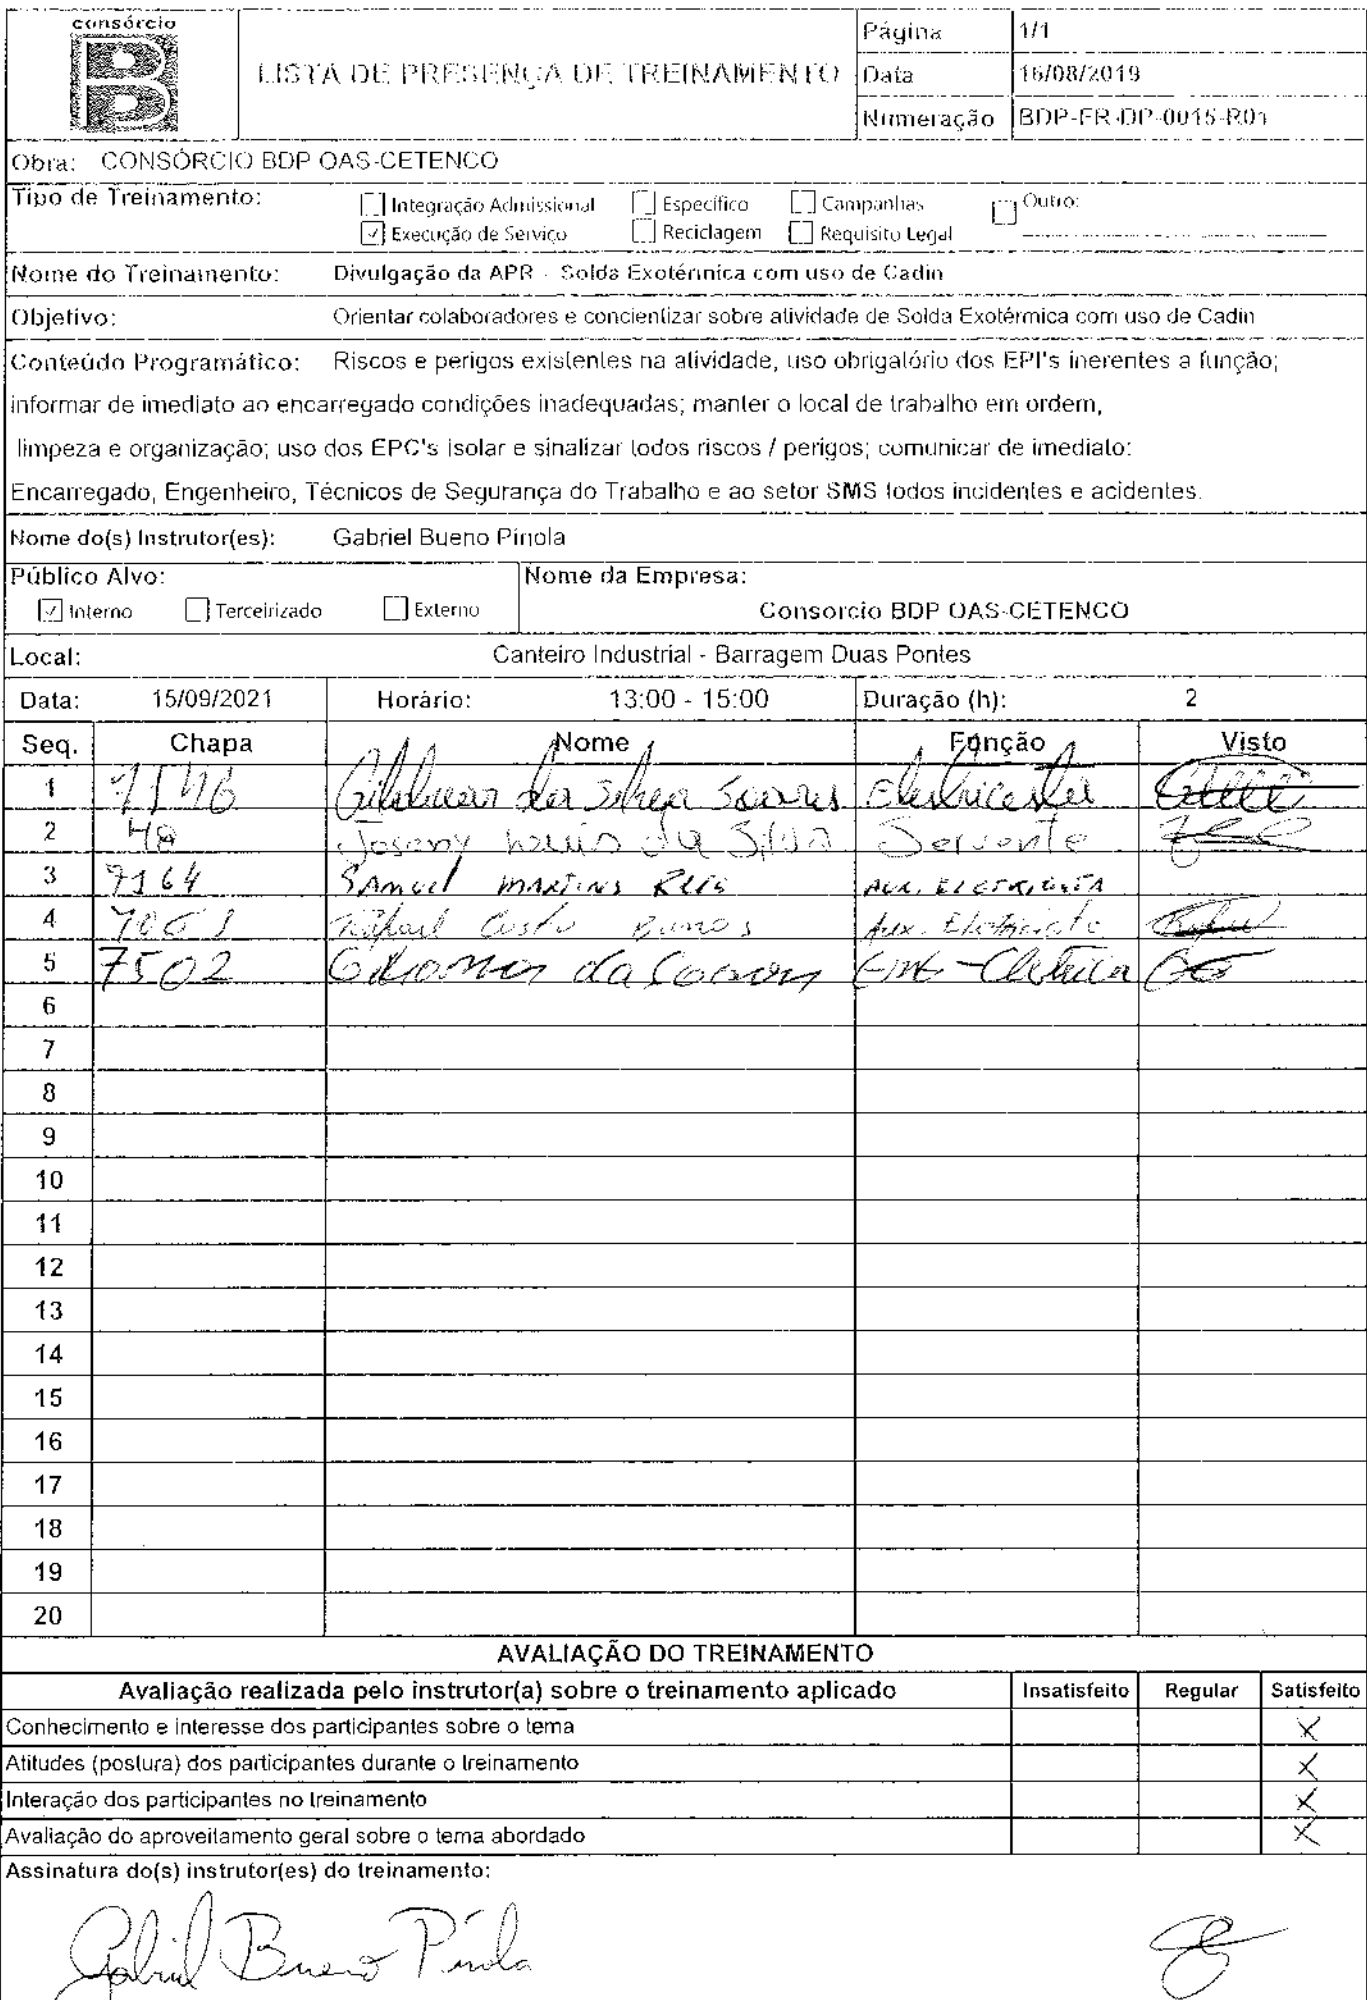 consórcio
B
LISTA DE PRESENÇA DE TREINAMENTO
Página 1/1
Data 16/08/2019
Numeração BDP-FR-DP-0015-R01
Obra: CONSÓRCIO BDP OAS-CETENCO
Tipo de Treinamento:
Integração Admissional Específico Campanhas Outro:
Execução de Serviço Reciclagem Requisito Legal
Nome do Treinamento: Divulgação da APR - Solda Exotérmica com uso de Cadin
Objetivo: Orientar colaboradores e concientizar sobre atividade de Solda Exotérmica com uso de Cadin
Conteúdo Programático: Riscos e perigos existentes na atividade, uso obrigatório dos EPI's inerentes a função;
informar de imediato ao encarregado condições inadequadas; manter o local de trabalho em ordem,
limpeza e organização; uso dos EPC's isolar e sinalizar todos riscos / perigos; comunicar de imediato:
Encarregado, Engenheiro, Técnicos de Segurança do Trabalho e ao setor SMS todos incidentes e acidentes.
Nome do(s) Instrutor(es): Gabriel Bueno Pinola
Público Alvo: Nome da Empresa:
Interno Terceirizado Externo Consorcio BDP OAS-CETENCO
Local: Canteiro Industrial - Barragem Duas Pontes
Data: 15/09/2021 Horário: 13:00 - 15:00 Duração (h): 2
Seq. Chapa Nome Função Visto
1 da Silva Soares Eletricista
2 Josony Luis da Silva Servente
3 7164 SAMUEL MARTINS REIS AUX. ELETRICISTA
4 Rafael Aux. Eletricista
5 7502 da
6
7
8
9
10
11
12
13
14
15
16
17
18
19
20
AVALIAÇÃO DO TREINAMENTO
Avaliação realizada pelo instrutor(a) sobre o treinamento aplicado Insatisfeito Regular Satisfeito
Conhecimento e interesse dos participantes sobre o tema X
Atitudes (postura) dos participantes durante o treinamento X
Interação dos participantes no treinamento X
Avaliação do aproveitamento geral sobre o tema abordado X
Assinatura do(s) instrutor(es) do treinamento:
Gabriel Bueno Pinola